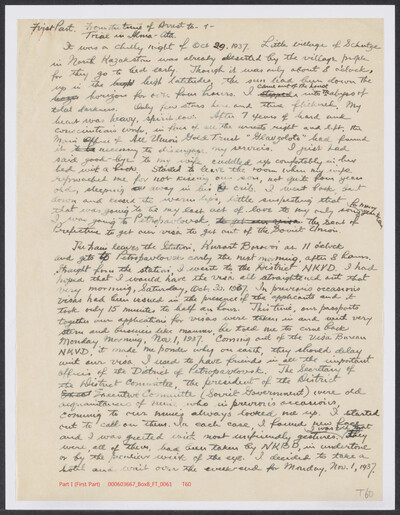 First Part. From the time of Arrest to -1-
Trial in Alma-Ata
It was a chilly night of Oct 29, 1937. Little village of Schutze
in North Kazakstan was already deserted by the village people
for they go to bed early. Though it was only about 8 o'clock,
up in the high latitudes, the sun had been down the
horizon for over four hours. I came out of the house into the abyss of
total darkness. Only few stars here and there flickered. My
heart was heavy, spirit low. After 7 years of hard and
conscientious work, in face of all the unrest right and left, the
Main Office of All Union Gold Trust "Glavzoloto" had found
it necessary to my services. I just had
said good-bye to my wife cuddled up comfortably in her
bed with a book. Started to leave the room when my wife
reproached me for not kissing our son, not quite four years
old, sleeping away in his crib. I went back, bent
down and kissed his warm lips, little suspecting that
that was going to be my last act of love to my only son
I was going to Petropavlovsk the Seat of
Prefecture to get our visa to get out of the Soviet Union.
The train leaves the Station, Kurort Borovoi at 11 o'clock
and gets to Petropavlovsk early the next morning, after 8 hours.
Straight from the station, I went to the District NKVD. I had
hoped that I would have the visa all straightened out that
very morning, Saturday, Oct. 30, 1937. In previous occasions
visas had been issued in the presence of the applicants and it
took only 15 minutes to half an hour. This time, our passports
together with application for visas were taken in and in very
stern and business like manner, he told me to come back
Monday morning, Nov. 1, 1937. Coming out of the Visa Bureau
NKVD, it made me ponder why on earth, they should delay
with our visa. I used to have friends in all the important
offices of the District of Petropavlovsk. The Secretary of
the District Committee, the president of the District
Executive Committee (Soviet Government) were old
acquaintances of mine who in previous occasions
coming to our mine always looked me up. I started
out to call on them. In each case, I found new faces
and I was greeted with most unfriendly gestures. I was told that they
were all of them, had been taken by NKVD, in undertone
or by the frontier word of the eye. I decided to take a
hotel and wait over the weekend for Monday, Nov. 1, 1937.
Part I (First Part) 000603667_Box8_FT_0061 T60
T60